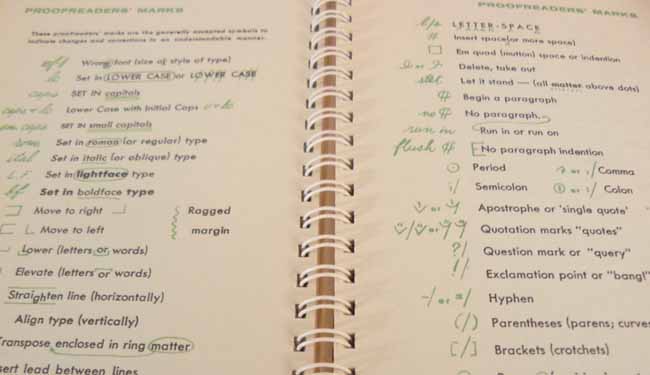 PROOFREADERS' MARKS
These proofreaders' marks are the generally accepted symbols to
indicate changes and corrections in an understandable manner.
wf Wrong font (size of style of type)
lc Set in LOWER CASE or LOWER CASE
caps SET IN capitals
caps + lc Lower Case with Initial Caps
caps SET IN small capitals
rom Set in roman (or regular) type
ital Set in italic (or oblique) type
L.F. Set in lightface type
bf Set in boldface type
Move to right
Ragged
Move to left
margin
Lower (letters or words)
Elevate (letters or words)
Straighten line (horizontally)
Align type (vertically)
Transpose enclosed in ring matter
lead between lines
PROOFREADERS' MARKS
LETTER-SPACE
# Insert space (or more space)
Em quad (mutton) space or indention
Delete, take out
stet Let it stand — (all matter above dots)
Begin a paragraph
no Paragraph No paragraph.
run in Run in or run on
flush No paragraph indention
Period
Comma
;/ Semicolon
or :/ Colon
or Apostrophe or 'single quote'
or Quotation marks "quotes"
?/ Question mark or "query"
!/ Exclamation point or "bang!"
-/ or =/ Hyphen
(/) Parentheses (parens; curves
[/] Brackets (crotchets)